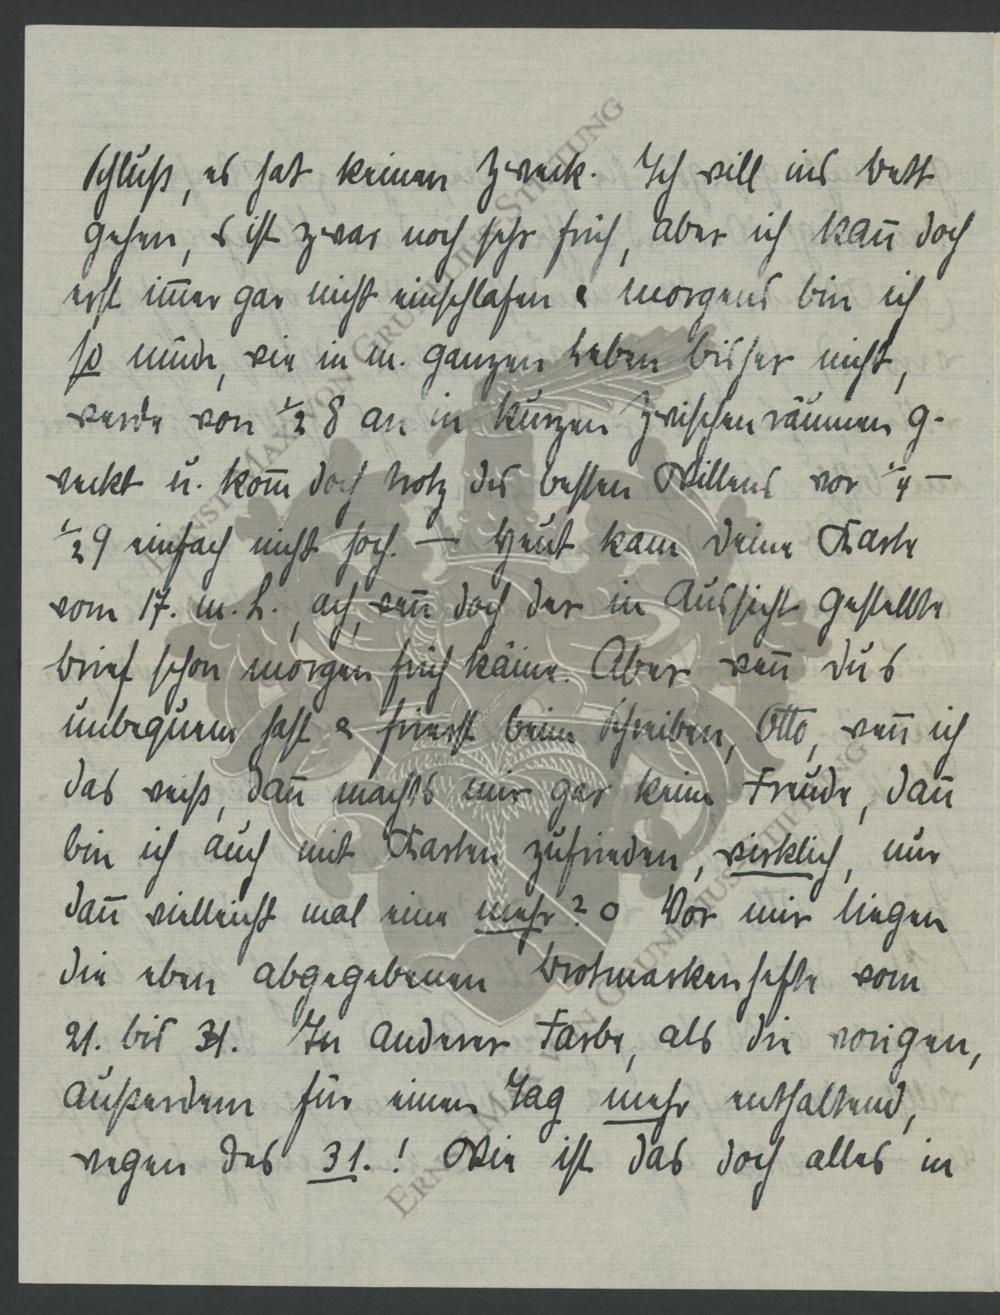 Schluß, es hat keinen Zweck. Ich will ins Bett
gehen, es ist zwar noch sehr früh, aber ich kan̄ doch
erst im̄er gar nicht einschlafen & morgens bin ich
so müde, wie in m. ganzen Leben bisher nicht,
werde von ½ 8 an in kurzen Zwischenräumen ge-
weckt u. kom̄ doch trotz des besten Willens vor ¼ –
½ 9 einfach nicht hoch. — Heut kam Deine Karte
vom 17. m. L., ach, wen̄ doch der in Aussicht gestellte
Brief schon morgen früh käme. Aber wen̄ Dus
unbequem hast & frierst beim Schreiben, Otto, wen̄ ich
das weiß, dan̄ machts mir gar keine Freude, dan̄
bin ich auch mit Karten zufrieden, wirklich, nur
dan̄ vielleicht mal eine mehr? o Vor mir liegen
die eben abgegebenen Brotmarkenhefte vom
21. bis 31. In anderer Farbe, als die vorigen,
außerdem für einen Tag mehr enthaltend,
wegen des 31.! Wie ist das doch alles in
ERNST MAX VON GRUNELIUS-STIFTUNG
ERNST MAX VON GRUNELIUS-STIFTUNG